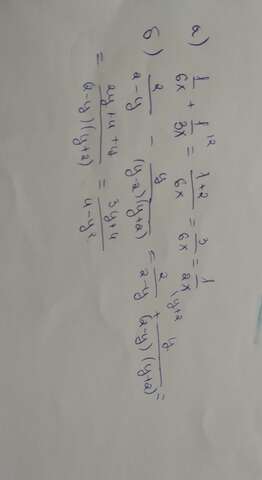 а) 1/6x + 1/3x^(12 = (1+2)/6x = 3/6x = 1/2x
б) 2/(2-y) - y/((y-2)(y+2)) = 2/(2-y)^(y+2 + y/((2-y)(y+2)) =
= (2y+4+y)/((2-y)(y+2)) = (3y+4)/(4-y²)